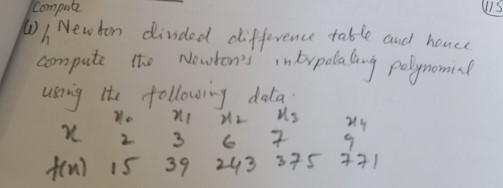 Compute
115
(1) Newton divided difference table and hence
compute the Newton's intrpolating polynomial
using the following data.
x0 x1 x2 x3 x4
x 2 3 6 7 9
f(x) 15 39 243 375 771